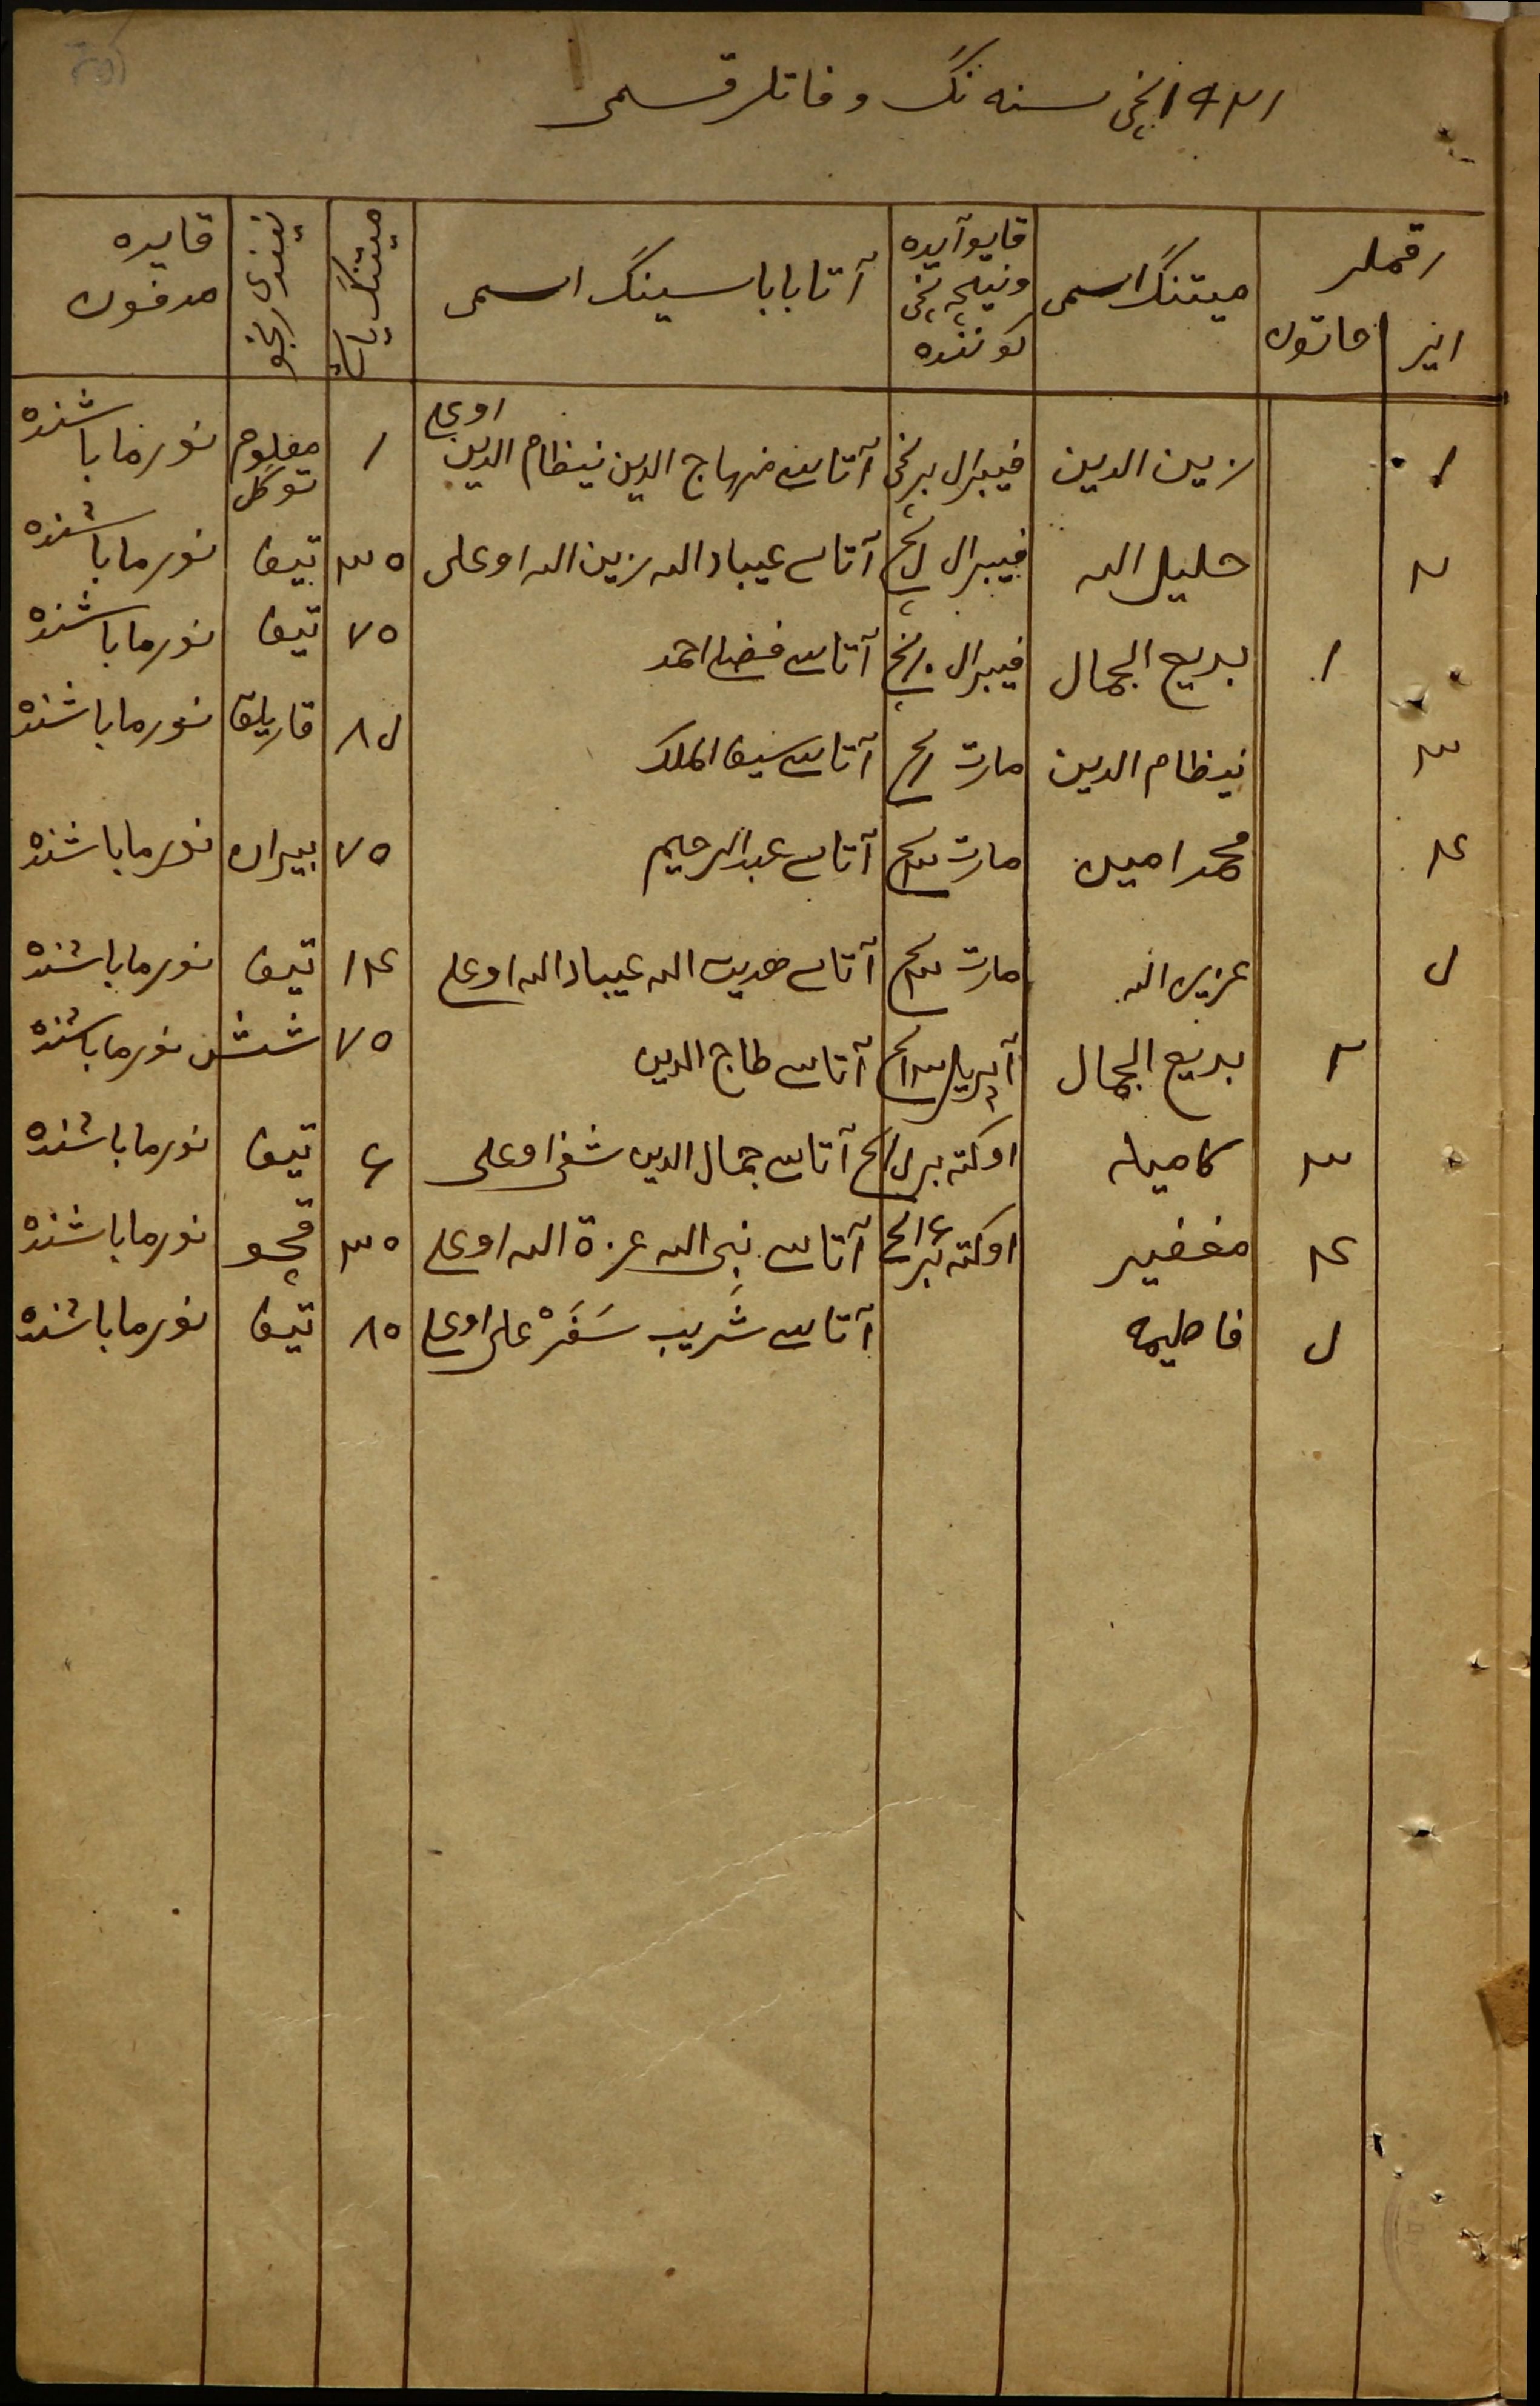 ١٩٢١ نچی سنه نڭ وفاتلر قسمی
رقملر
ایر
خاتون
میتنڭ اسمی
قایو آیده
ونیچه نچی
كوننده
آتا باباسینڭ اسمی
میتنڭ یاشی
قایده
مدفون
١ زین الدین فیبرال برنچی آتاسی منهاج الدین نیظام الدین اوغلی ١ معلوم توگل نورمابا شنده
٢ خلیل الله فیبرال آتاسی عیباد الله زین الله اوغلی ٣٥ تیف نورمابا شنده
١ بدیع الجمال فیبرال آتاسی فضل احمد ٧٥ تیف نورمابا شنده
٣ نیظام الدین مارت آتاسی سیف الملك ٨٥ قارتلق نورمابا شنده
٤ محمد امین مارت آتاسی عبد الرحیم ٧٥ نورمابا شنده
٥ عزیز الله مارت آتاسی هدیت الله عیباد الله اوغلی ١٤ تیف نورمابا شنده
٢ بدیع الجمال آپریل آتاسی طاج الدین ٧٥ شش نورمابا شنده
٣ كامیله اوكته برل آتاسی جمال الدین شفی اوغلی ٤ تیف نورمابا شنده
٤ مغفیر اوكته بر آتاسی نبی الله عزة الله اوغلی ٣٥ نورمابا شنده
٥ فاطیمه آتاسی شریب سَفَرْ علی اوغلی ٨٥ تیف نورمابا شنده